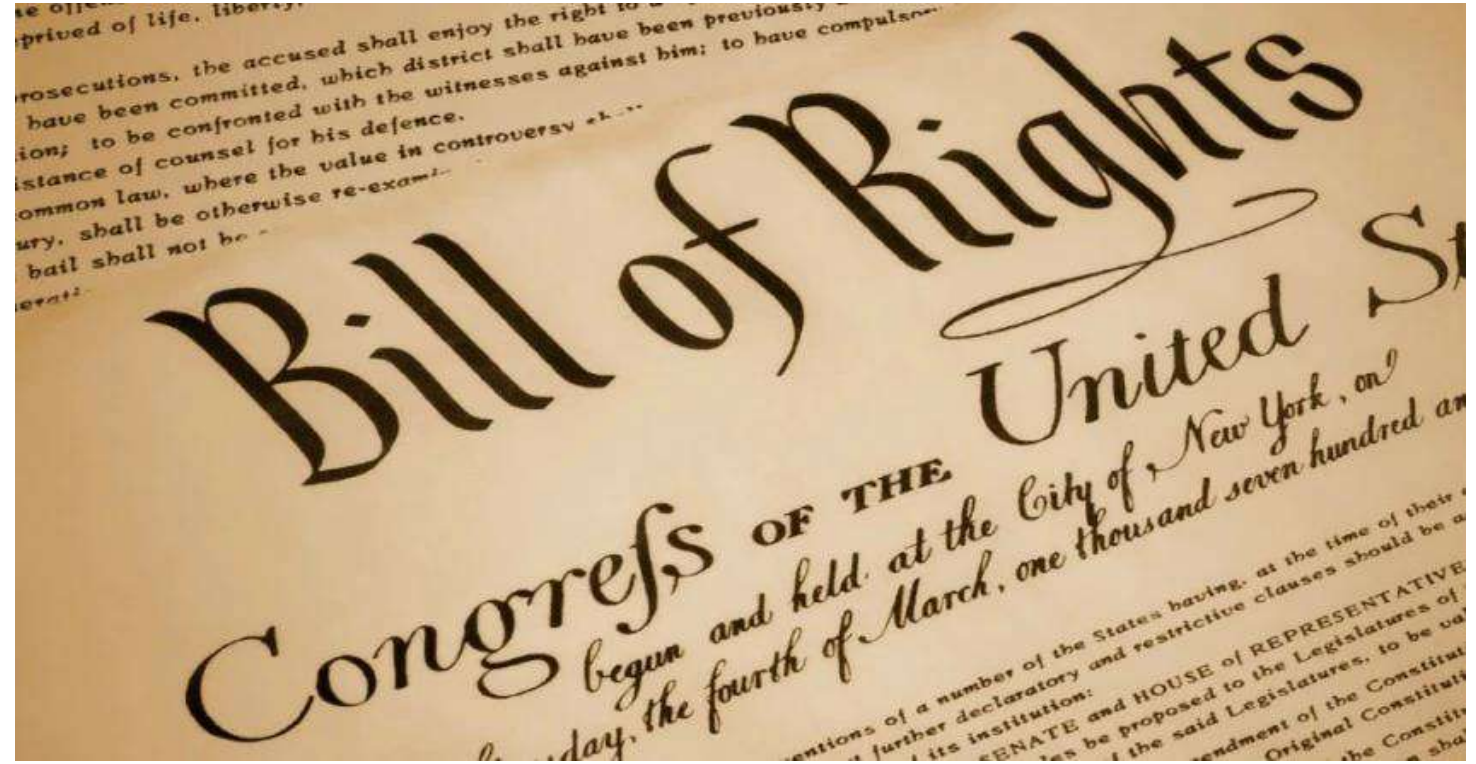 deprived of life, liberty,
prosecutions, the accused shall enjoy the right to a
have been committed, which district shall have been previously
to be confronted with the witnesses against him; to have
of counsel for his defence.
common law, where the value in controversy
shall be otherwise
bail shall not be
Bill of Rights
Congreſs OF THE United
begun and held at the City of New York, on
the fourth of March, one thousand seven hundred
of a number of the States having, at the time of their
further declaratory and restrictive clauses should be
its institution:
SENATE and HOUSE of
be proposed to the Legislatures of
the said Legislatures, to be
of the
Original
the